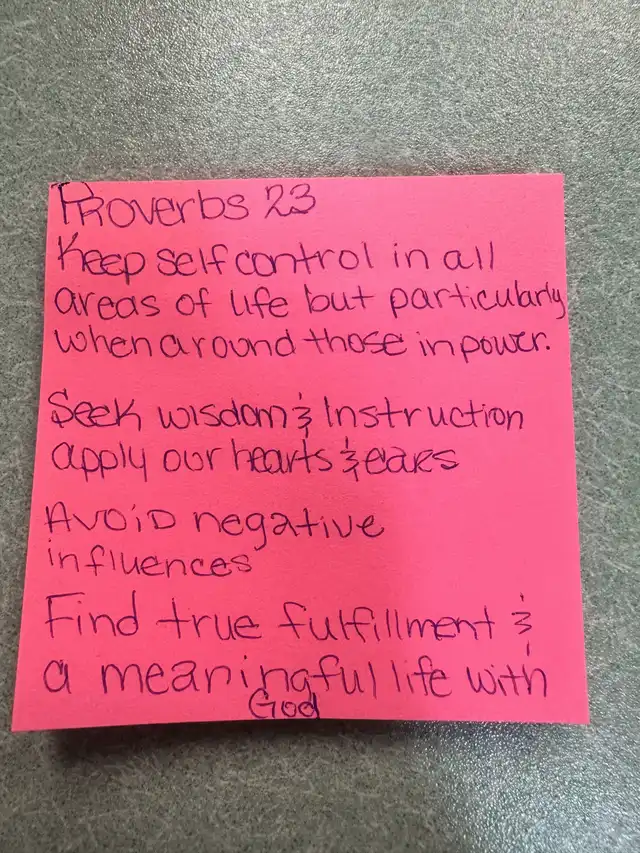 Proverbs 23
Keep self control in all
areas of life but particularly
when around those in power.
Seek wisdom & Instruction
apply our hearts & ears
Avoid negative
influences
Find true fulfillment &
a meaningful life with
God